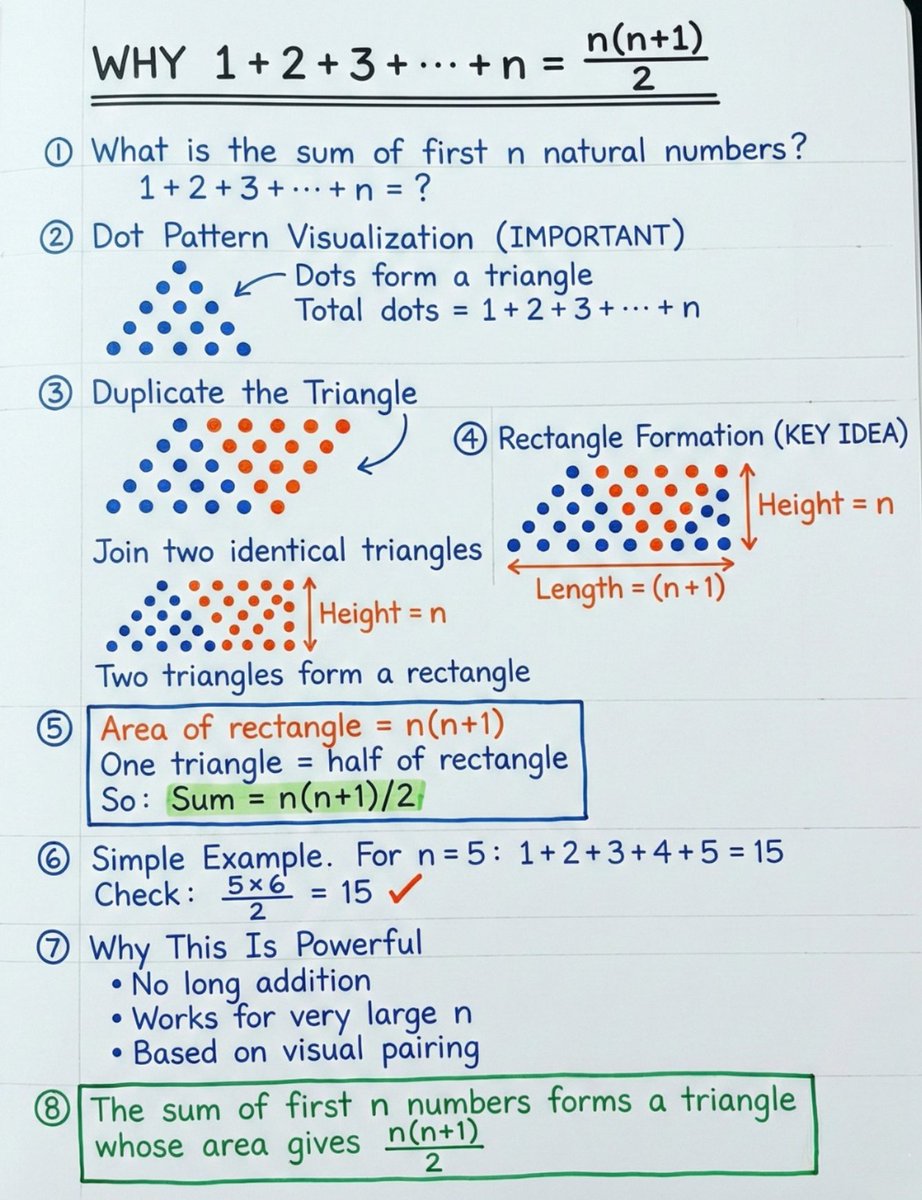 WHY 1+2+3+⋯+n = n(n+1)/2
① What is the sum of first n natural numbers?
1+2+3+⋯+n = ?
② Dot Pattern Visualization (IMPORTANT)
Dots form a triangle
Total dots = 1+2+3+⋯+n
③ Duplicate the Triangle
Join two identical triangles
Height = n
Two triangles form a rectangle
④ Rectangle Formation (KEY IDEA)
Height = n
Length = (n+1)
⑤ Area of rectangle = n(n+1)
One triangle = half of rectangle
So: Sum = n(n+1)/2
⑥ Simple Example. For n=5: 1+2+3+4+5 = 15
Check: 5×6/2 = 15 ✓
⑦ Why This Is Powerful
• No long addition
• Works for very large n
• Based on visual pairing
⑧ The sum of first n numbers forms a triangle
whose area gives n(n+1)/2